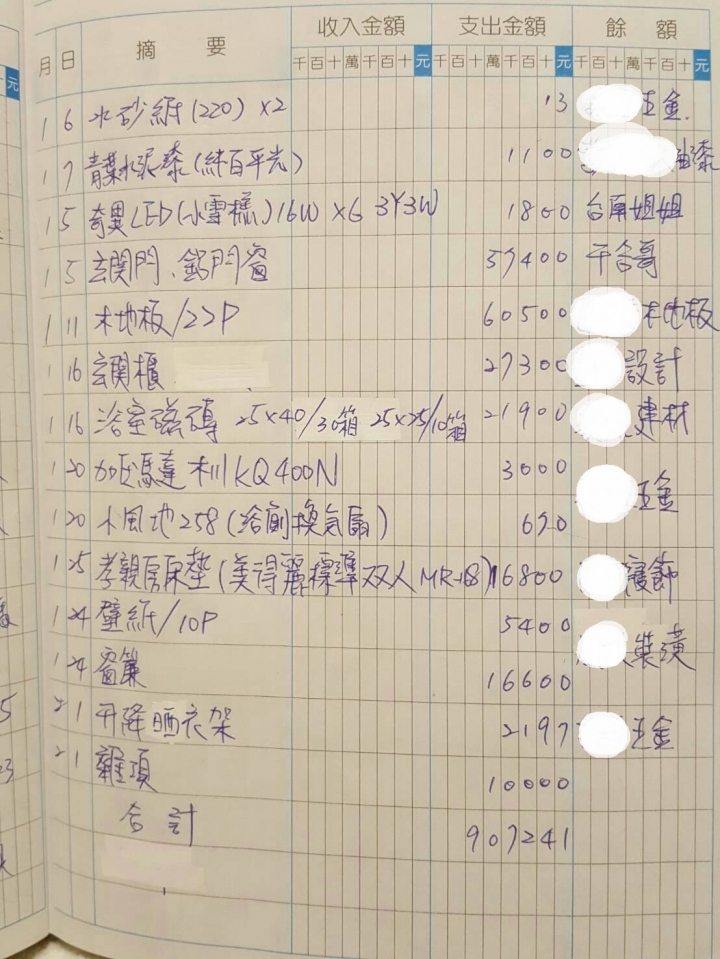 元
月 日 摘 要 收入金額 支出金額 餘 額
千百十萬千百十元 千百十萬千百十元 千百十萬千百十元
1 6 水砂紙(220) ×2 13 五金.
1 7 青葉水泥漆(純百平光) 1100 油漆
1 5 奇異LED(小雪糕)16W ×6 3Y3W 1800 台南姐姐
1 5 玄関門、鋁門窗 57400 千合哥
1 11 木地板/22P 60500 木地板
1 16 玄関櫃 27300 設計
1 16 浴室磁磚 25×40/30箱 25×25/10箱 21900 建材
1 20 加圧馬達 木川KQ400N 3000
五金
1 20 水風地258(浴廁換気扇) 670
1 25 孝親房床墊(美得麗標準双人MR-168) 16800 寢飾
1 24 壁紙/10P 5400
裝潢
1 24 窗簾 16600
2 1 升降晒衣架 2197 五金
2 1 雜項 10000
合計 907241